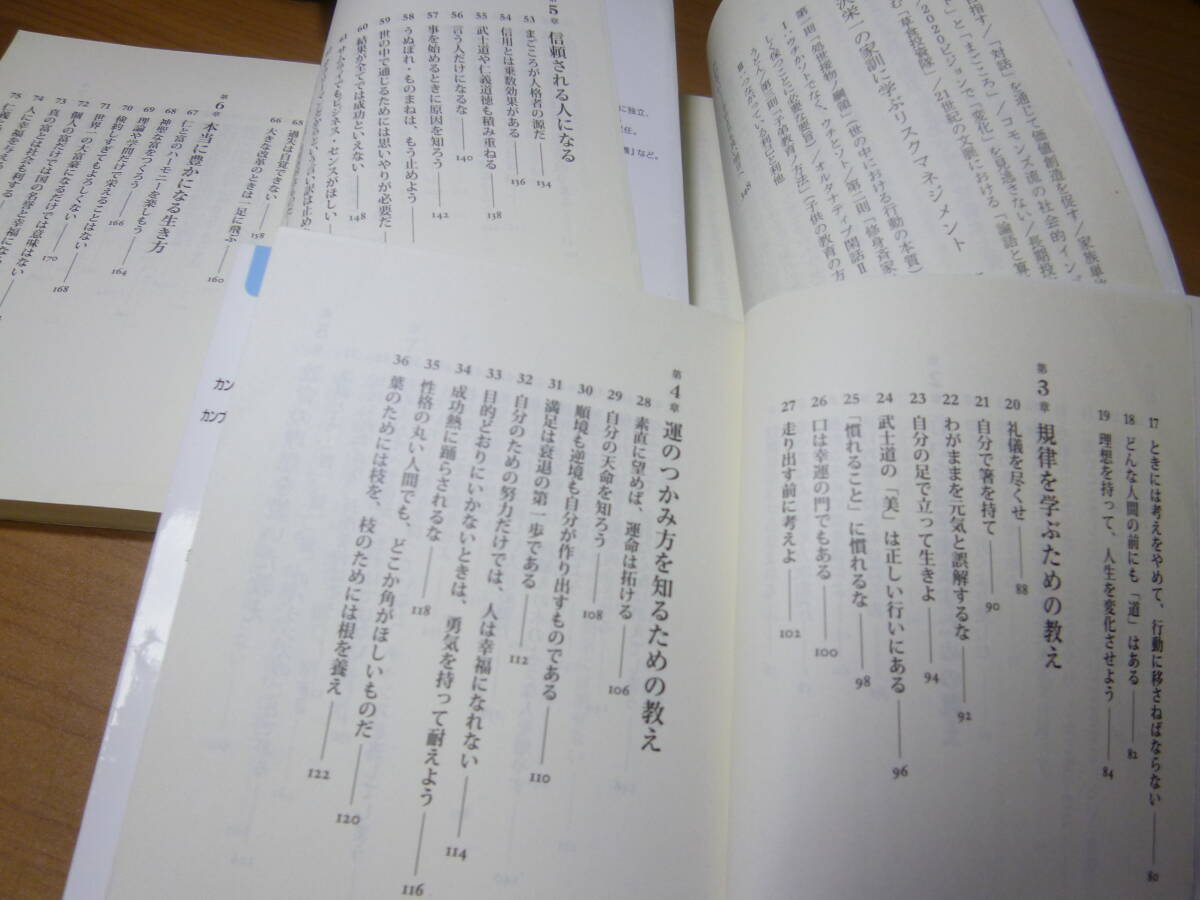 17 ときには考えをやめて、行動に移さねばならない 80
18 どんな人間の前にも「道」はある 82
19 理想を持って、人生を変化させよう 84
第3章 規律を学ぶための教え
20 礼儀を尽くせ 88
21 自分で箸を持て 90
22 わがままを元気と誤解するな 92
23 自分の足で立って生きよ 94
24 武士道の「美」は正しい行いにある 96
25 「慣れること」に慣れるな 98
26 口は幸運の門でもある 100
27 走り出す前に考えよ 102
第4章 運のつかみ方を知るための教え
28 素直に望めば、運命は拓ける 106
29 自分の天命を知ろう 108
30 順境も逆境も自分が作り出すものである 110
31 満足は衰退の第一歩である 112
32 自分のための努力だけでは、人は幸福になれない 114
33 目的どおりにいかないときは、勇気を持って耐えよう 116
34 成功熱に踊らされるな 118
35 性格の丸い人間でも、どこか角がほしいものだ 120
36 葉のためには枝を、枝のためには根を養え 122
指す/「対話」を通じて価値創造を促す/家族単
ト」と「まごころ」/コモンズ流の社会的イン
2020ビジョンで「変化」を見過さない/長期投
む「草食投資隊」/21世紀の文脈における「論語と算
沢栄一の家訓に学ぶリスクマネジメント
第一則「処世接物ノ綱領」(世の中における行動の本質)
Ⅰ・ウチかソトでなく、ウチとソト/第二則「修身斉家
しく保つことに必要な要旨)/オルタナティブ閑話Ⅱ
うどん/第三則「子弟教育ノ方法」(子供の教育の方
Ⅲ・つながっている利己と利他
148
に独立、
任。
』など。
第5章 信頼される人になる
53 まごころが人格者の源だ 134
54 信用とは乗数効果がある 136
55 武士道や仁義道徳も積み重ねる 138
56 言う人だけになるな 140
57 事を始めるときに原因を知ろう 142
58 うぬぼれ・ものまねは、もう止めよう
59 世の中で通じるためには思いやりが必要だ
60 結果が全てでは成功といえない 148
61 サムライでもビジネス・センスがほしい
65 過失は自覚できない
66 大きな改革のときは一足に飛ぶ 158
第6章 本当に豊かになる生き方 160
67 仁と富のハーモニーを楽しもう
68 神聖な富をつくろう 164
69 理論や学問だけで栄えることはない 166
70 倹約しすぎてもよろしくない 168
71 世界一の大富豪になるだけでは意味はない 170
72 個人の富だけでは国の名誉と幸福にな
73 真の富とは社会も利する
74 人に幸福を与える
75
カン
カンブ